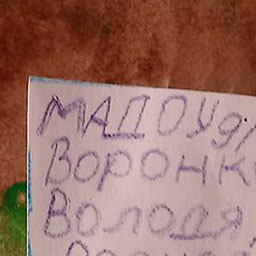 МАДОУ
ВОРОНК
ВОЛОДЯ,